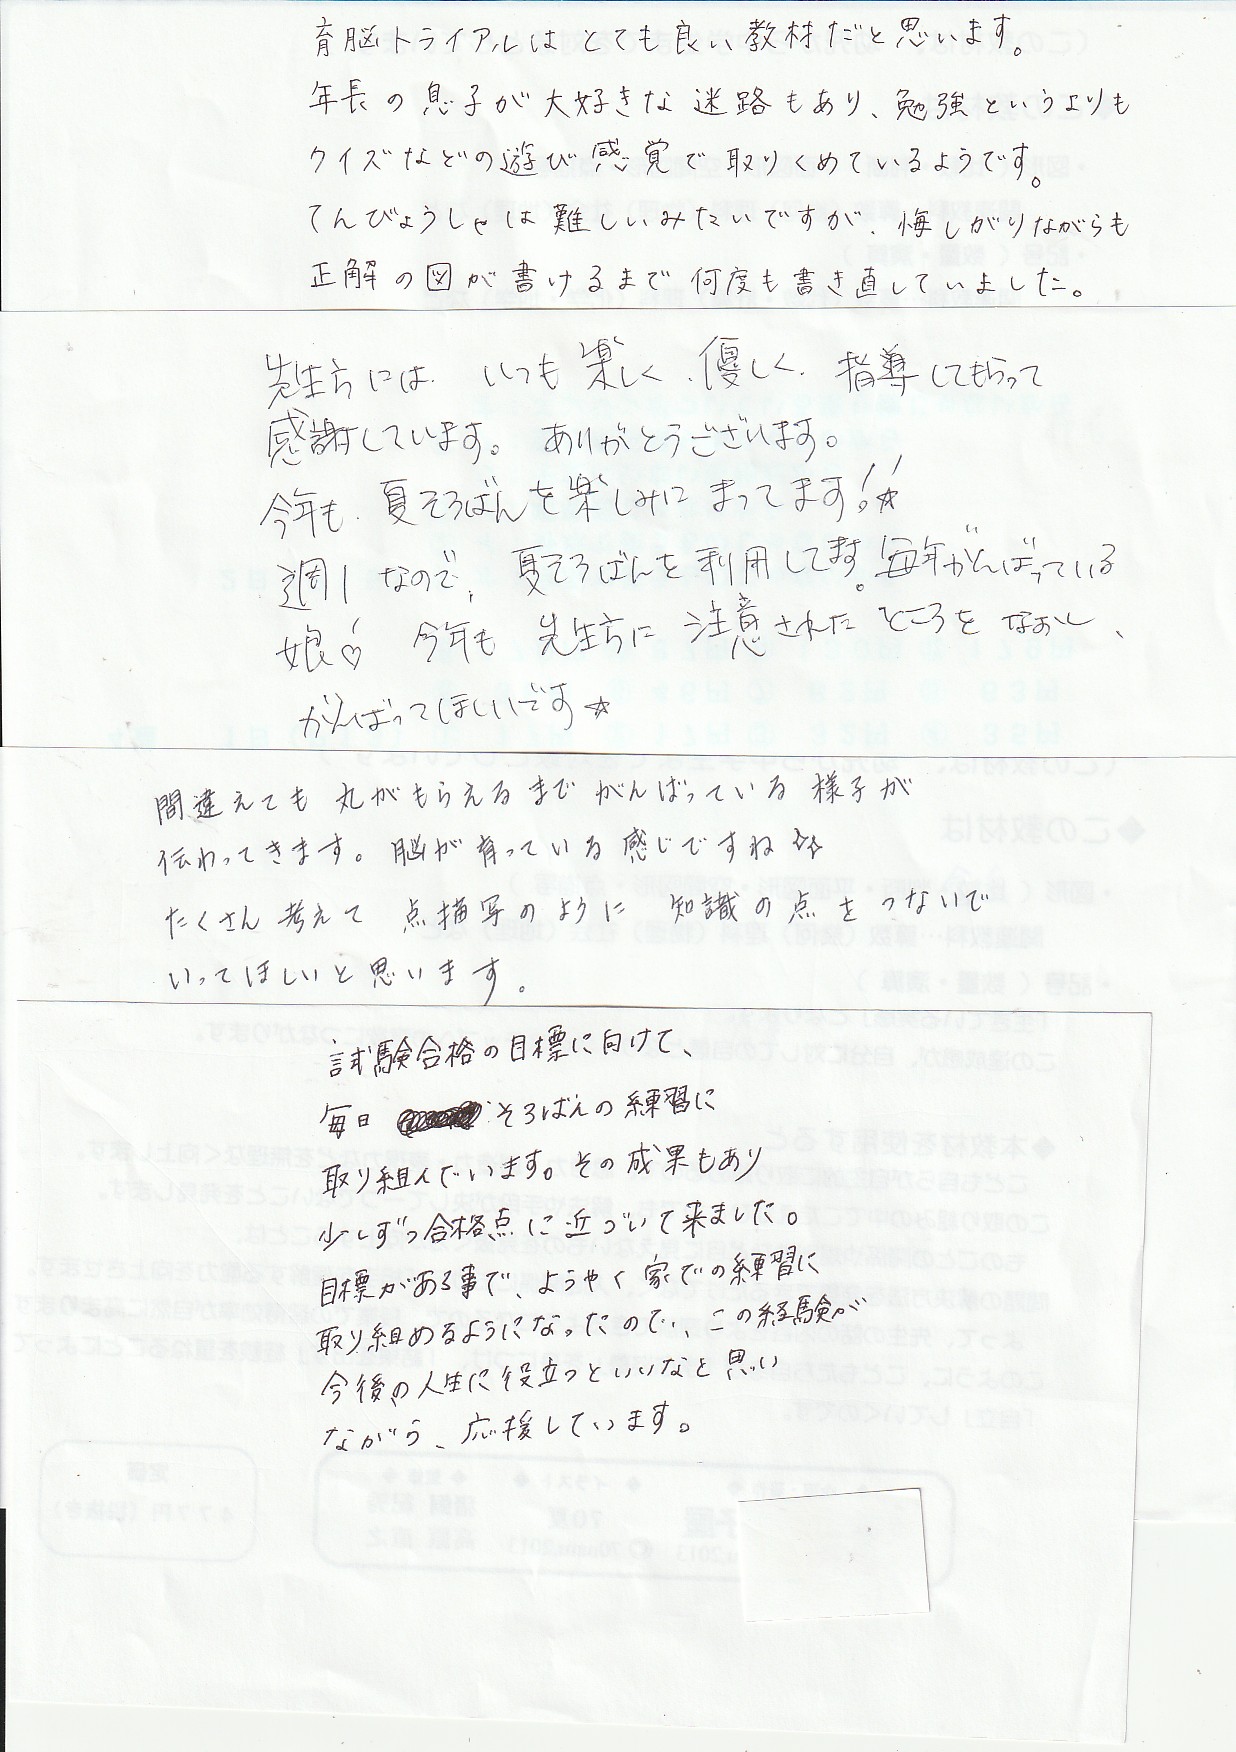 育脳トライアルはとても良い教材だと思います。
年長の息子が大好きな迷路もあり、勉強というよりも
クイズなどの遊び感覚で取りくめているようです。
てんびょうしゃは難しいみたいですが、悔しがりながらも
正解の図が書けるまで何度も書き直していました。
先生方には、いつも楽しく、優しく、指導してもらって
感謝しています。ありがとうございます。
今年も、夏そろばんを楽しみにまってます!☆
週1なので、夏そろばんを利用してます。毎年がんばっている
娘♡ 今年も先生方に注意されたところをなおし、
がんばってほしいです☆
間違えても丸がもらえるまでがんばっている様子が
伝わってきます。脳が育っている感じですね☆☆
たくさん考えて点描写のように知識の点をつないで
いってほしいと思います。
試験合格の目標に向けて、
毎日 そろばんの練習に
取り組んでいます。その成果もあり
少しずつ合格点に近づいて来ました。
目標がある事で、ようやく家での練習に
取り組めるようになったので、この経験が
今後の人生に役立つといいなと思い
ながら、応援しています。